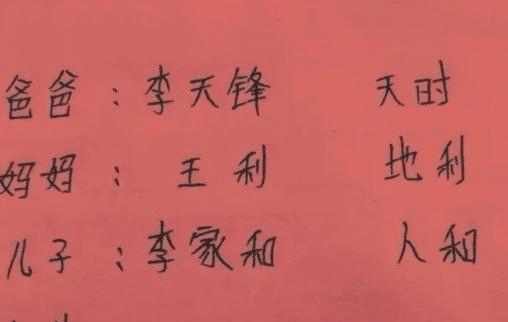 爸爸：李天锋 天时
妈妈：王利 地利
儿子：李家和 人和